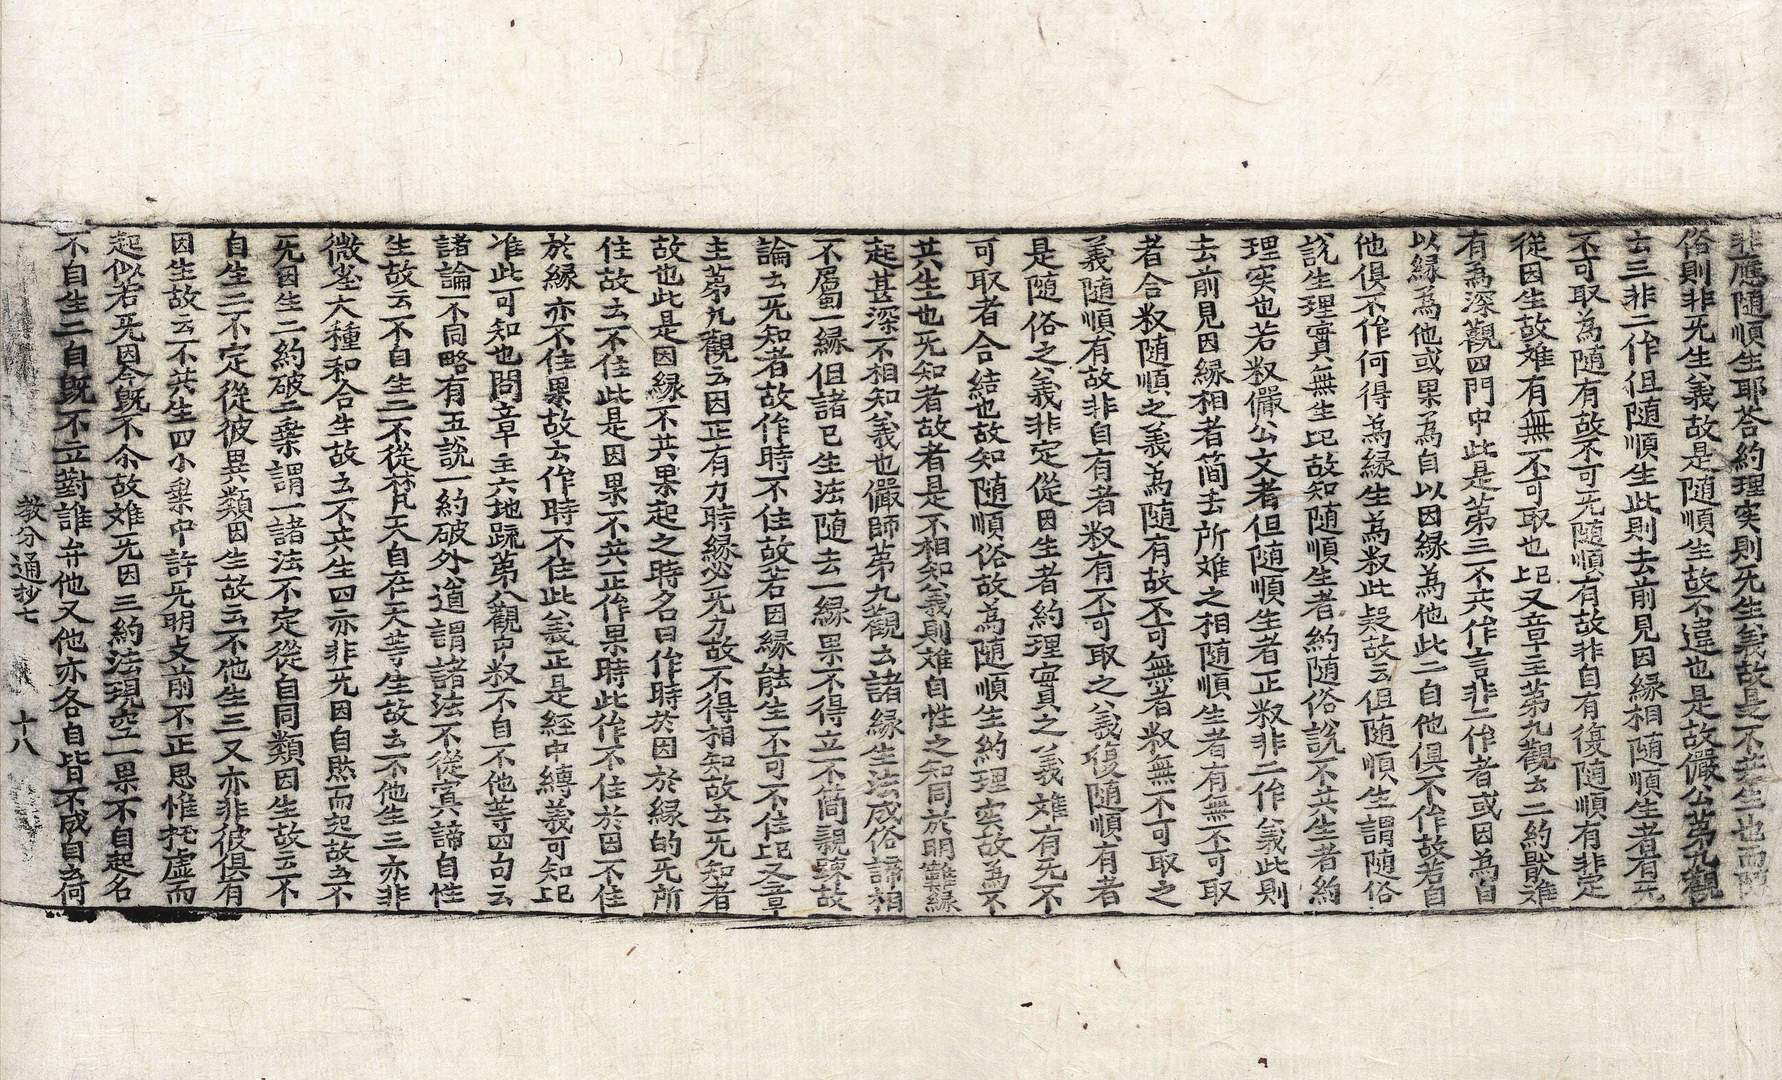 非應随順生耶荅約理实則旡生義故是不共生也而隨
俗則非旡生義故是随順生故不違也是故儼公第九觀
去三非二作但随順生此則去前見因縁相随順生者有旡
不可取為随有故不可旡随順有故非自有復随順有非定
從因生故难有無不可取也上已又章主第九觀云二約猒难
有為深觀四門中此是第三不共作言非二作者或因為自
以縁為他或果為自以因縁為他此二自他俱不作故若自
他俱不作何得為縁生為叙此疑故云但随順生謂随俗
說生理實無生已故知随順生者約随俗說不共生者約
理实也若叙儼公文者但随順生者正叙非二作義此則
去前見因縁相者簡去所难之相随順生者有無不可取
者合叙随順之義為随有故不可無者叙無不可取之
義随順有故非自有者叙有不可取之義復随順有者
是随俗之義非定從因生者約理實之義难有旡不
可取者合結也故知随順俗故為随順生約理实故為不
共生也旡知者故者是不相知義則难自性之知同於明難縁
起甚深不相知義也儼師第九觀云諸縁生法成俗諦相
不屬一縁但諸已生法随去一縁果不得立不簡親踈故
論云旡知者故作時不住故若因縁能生不可不住已又章
主第九觀云因正有力時縁必旡力故不得相知故云旡知者
故也此是因縁不共果起之時名曰作時於因於縁的旡所
住故云不住此是因果不共正作果時此作不住於因不住
於縁亦不住果故云作時不住此義正是經中縛義可知已
准此可知也問章主六地䟽第八觀中叙不自不他等四句云
諸論不同略有五說一約破外道謂諸法不從冥諦自性
生故云不自生二不從梵天自在天等生故云不他生三亦非
微塵大種和合生故云不共生四亦非旡因自然而起故云不
旡因生二約破二乗謂一諸法不定從自同類因生故云不
自生二不定從彼異類因生故云不他生三又亦非彼俱有
因生故云不共生四小乗中許旡明支前不正思惟托虛而
起似若旡因今既不尒故难旡因三約法現空一果不自起名
不自生二自旣不立對誰弁他又他亦各自皆不成自云何
教分通抄七　十八